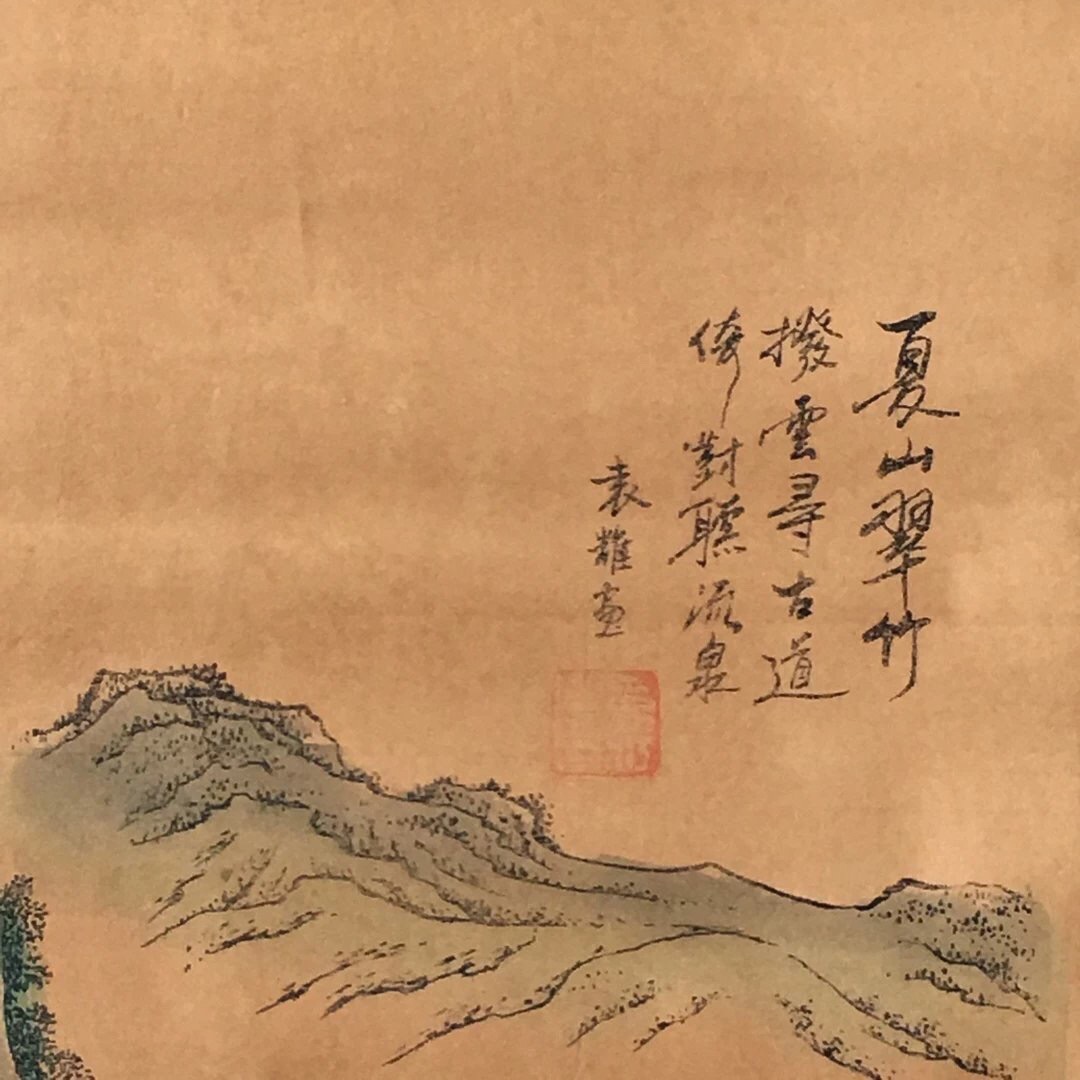 夏山翠竹
撥雲尋古道
倚對聽流泉
袁畫